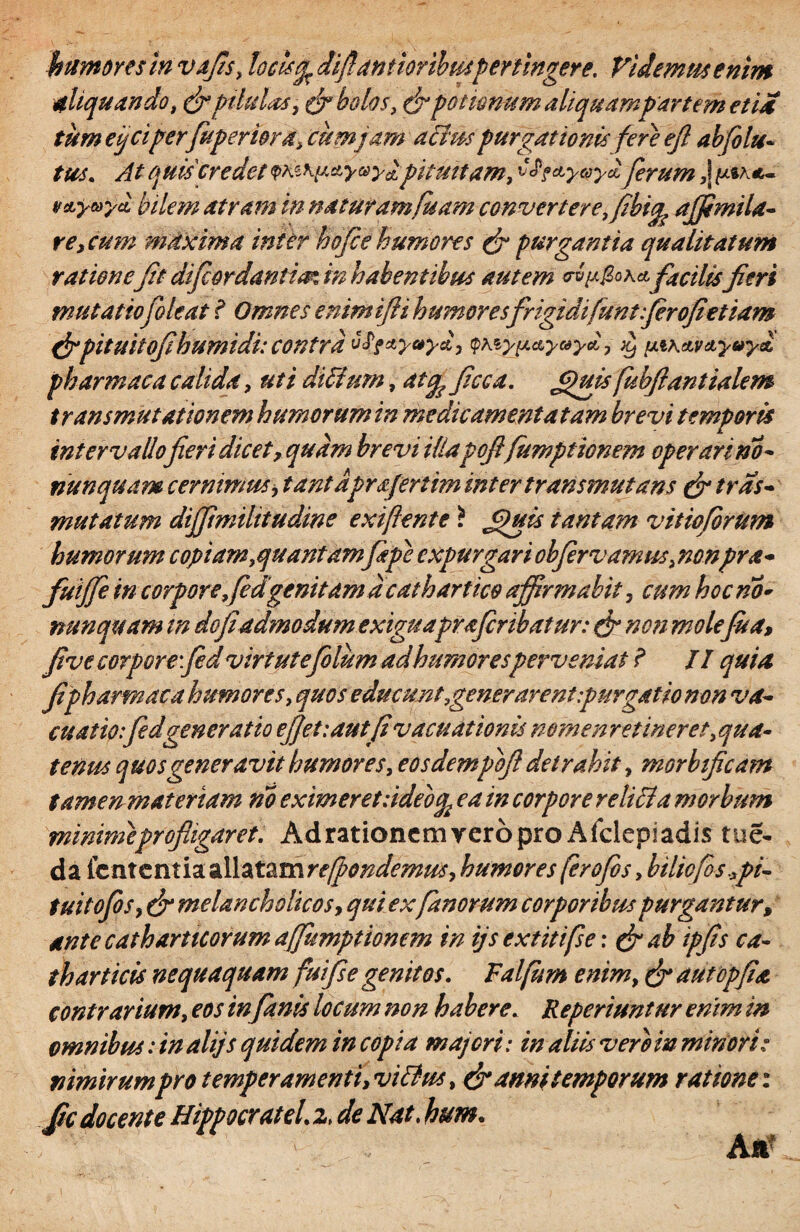 humores in vasis, locisq; distantioribus pertingere. Videmus enim
aliquando, & pilulas, & bolos, & potionum aliquam partem etiã
tùm eijci per superiora, cùm jam actus purgationis ferè est absolu-
tus. At quis credet φλεγμαγωγὰ pituitam, ὑδραγωγὰ serum, & μελα-
ναγωγὰ bilem atram in naturam suam convertere, sibiq; assimila-
re, cum maxima inter hosce humores & purgantia qualitatum
ratione sit discordantia: in habentibus autem σύμβολα facilis fieri
mutatio soleat? Omnes enim isti humores frigidi sunt: serosi etiam
& pituitosi humidi: contrà ὑδραγωγὰ, φλεγμαγωγὰ, ϗ μελαναγωγὰ
pharmaca calida, uti dictum, atq; sicca. Quis substantialem
transmutationem humorum in medicamentatam brevi temporis
intervallo fieri dicet, quàm brevi illa post sumptionem operari nõ-
nunquam cernimus, tantâ præsertim inter transmutans & trãs-
mutatum dissimilitudine existente? Quis tantam vitiosorum
humorum copiam, quantam sæpe expurgari observamus, non præ-
fuisse in corpore, sed genitam à cathartico affirmabit, cum hoc nõ-
nunquam in dosi admodum exigua præscribatur: & non mole sua,
sive corpore: sed virtute solùm ad humores perveniat? II quia
si pharmaca humores, quos educunt, generarent: purgatio non va-
cuatio: sed generatio esset: aut si vacuationis nomen retineret, qua-
tenus quos generavit humores, eosdem pòst detrahit, morbificam
tamen materiam nõ eximeret: ideoq; ea in corpore relicta morbum
minimè profligaret. Ad rationem verò pro Asclepiadis tuẽ-
da sententia allatam respondemus, humores serosos, biliosos, pi-
tuitosos, & melancholicos, qui ex sanorum corporibus purgantur,
ante catharticorum assumptionem in ijs extitisse: & ab ipsis ca-
tharticis nequaquam fuisse genitos. Falsum enim, & autopsiæ
contrarium, eos in sanis locum non habere. Reperiuntur enim in
omnibus: in alijs quidem in copia majori: in aliis verò in minori:
nimirum pro temperamenti, victus, & anni temporum ratione:
sic docente Hippocrate l. 2. de Nat. hum.
An